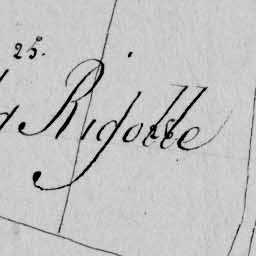 25.
Rigolle